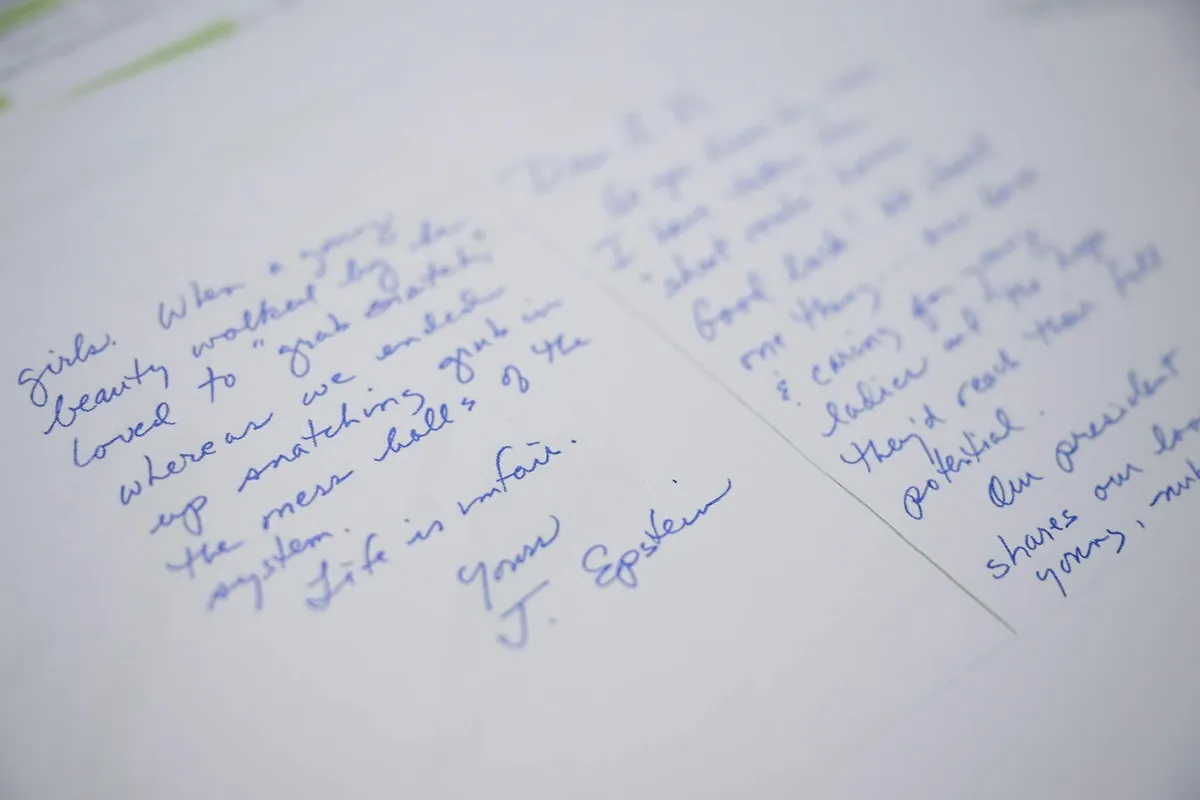 Dear L. N.
"short route" home
Good luck! We shared
one thing... our love
& caring for young
ladies and the hope
they'd reach their full
potential.
Our president
shares our love
young, nub
girls. When a young
beauty walked by he
loved to "grab snatch,"
whereas we ended
up snatching grub in
the mess halls of the
system.
Life is unfair.
Yours
J. Epstein